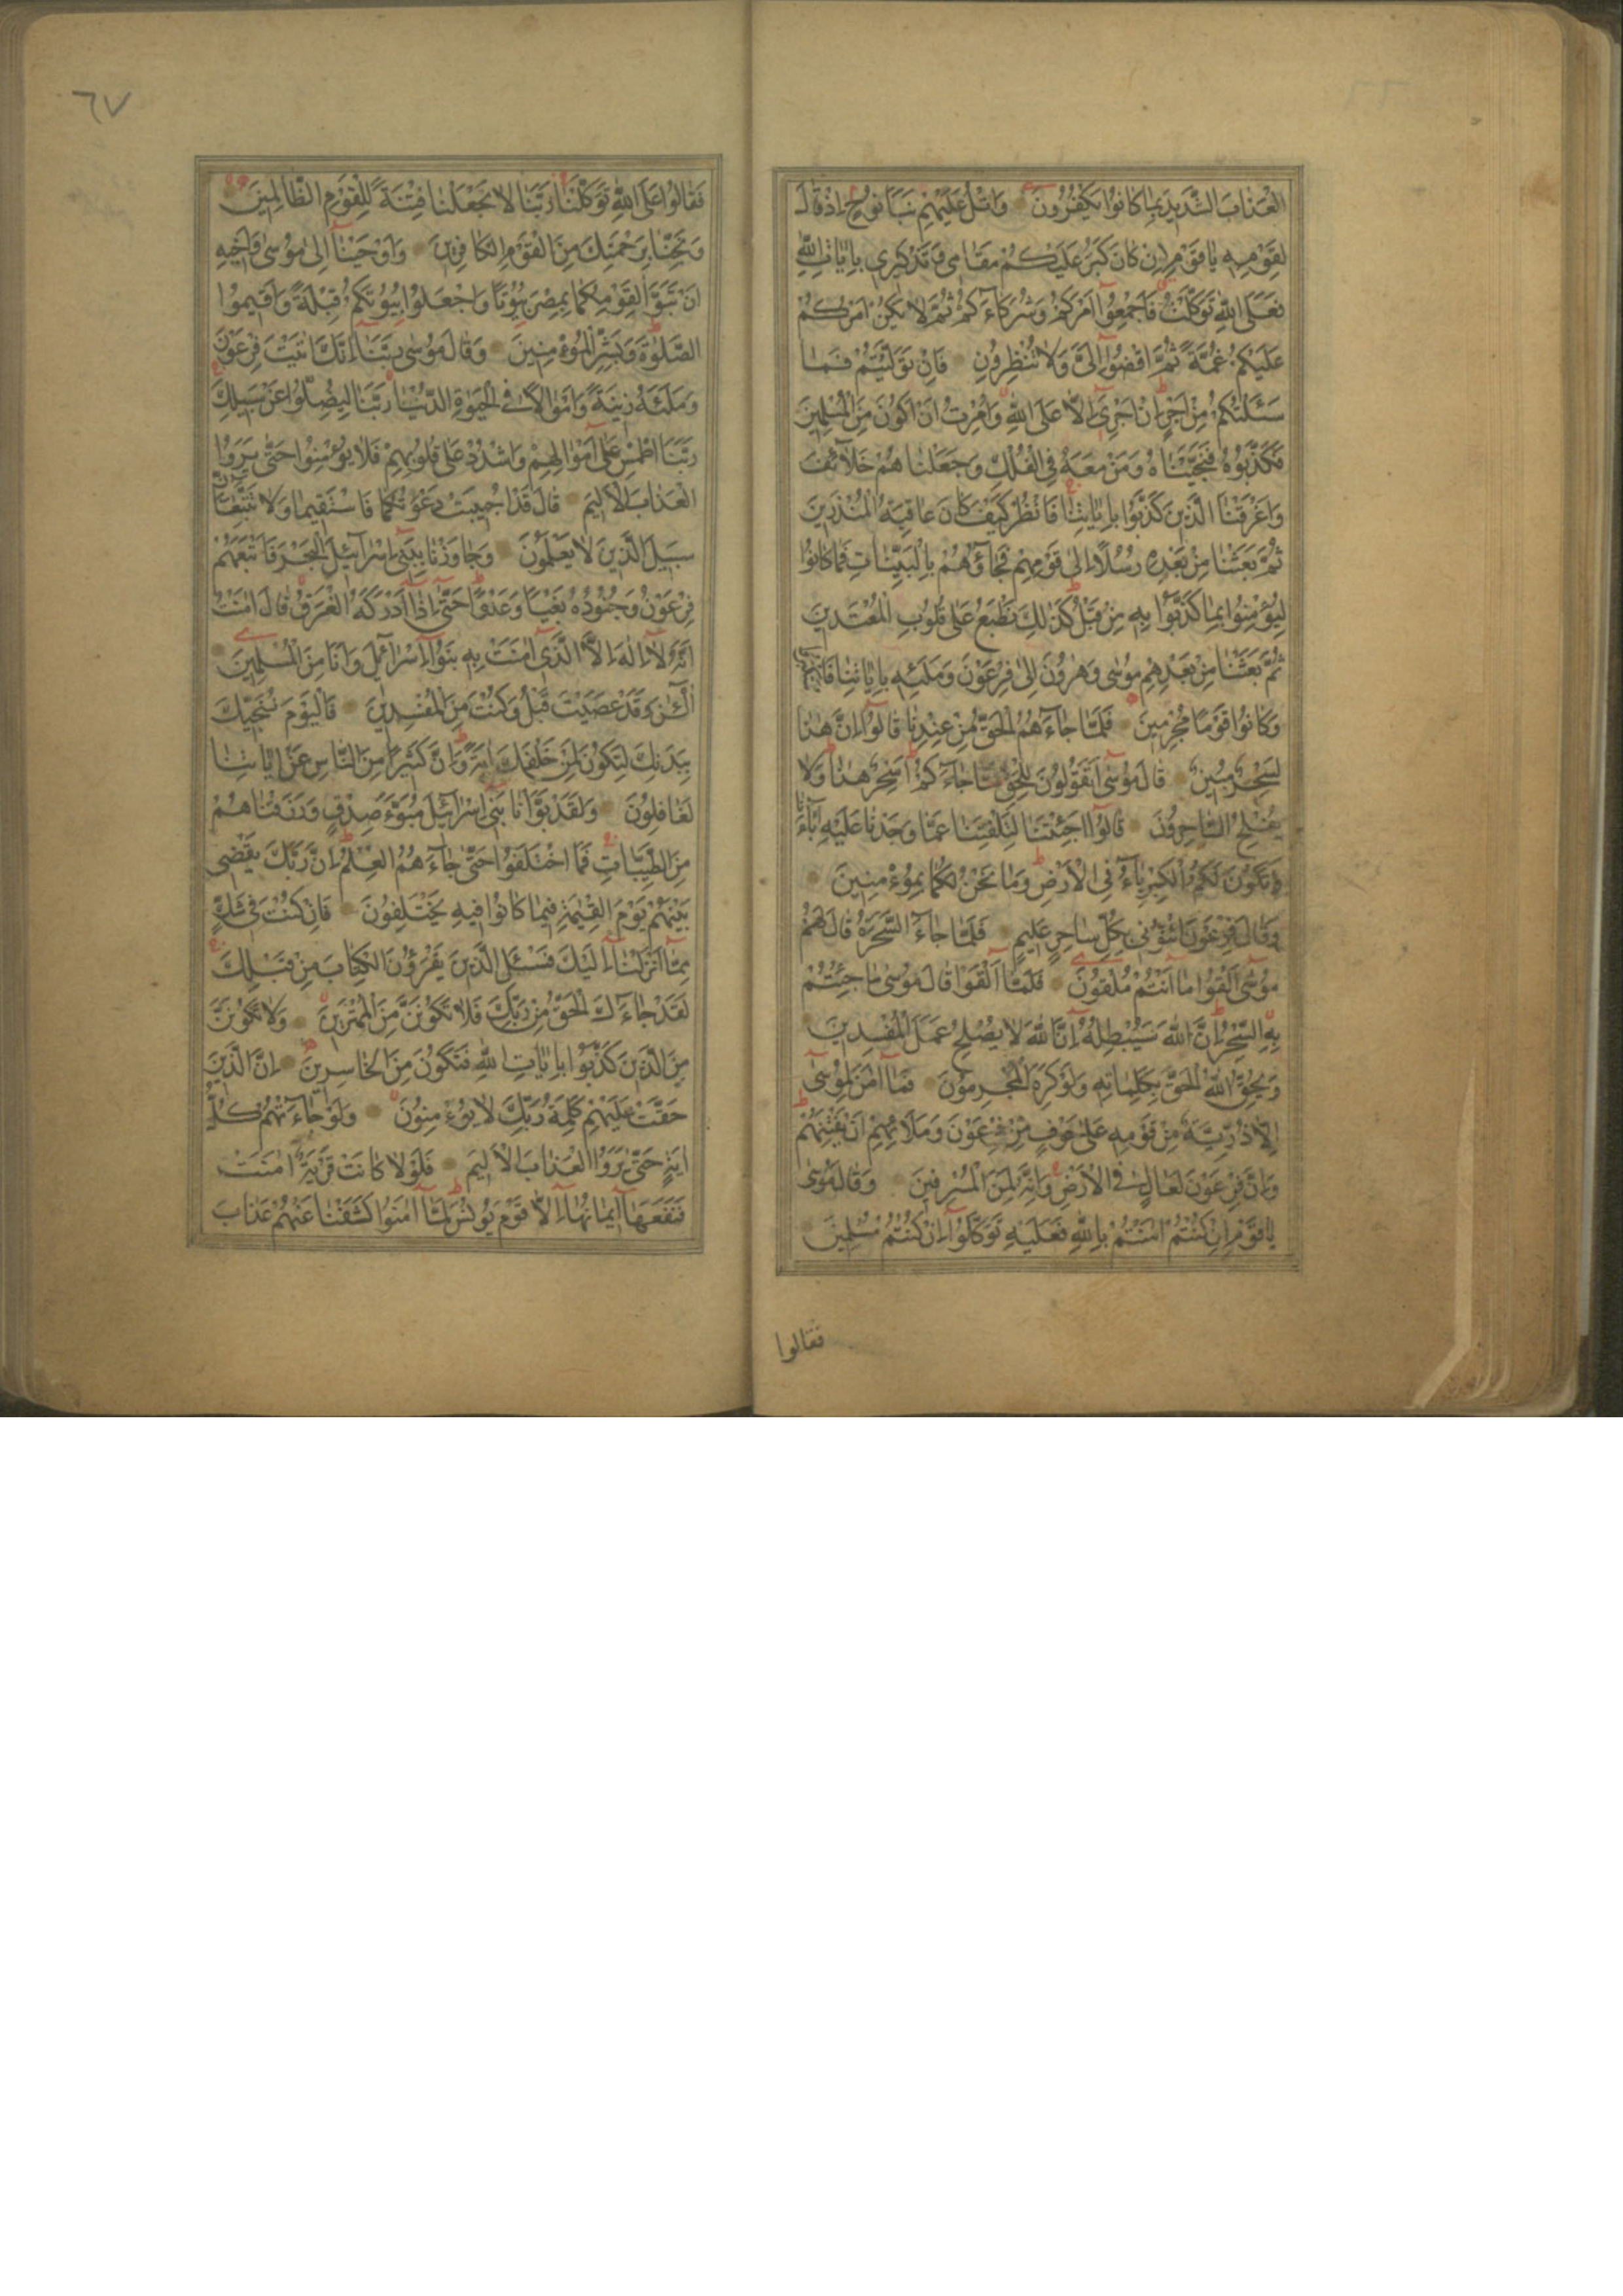 العذاب الشديد بما كانوا يكفرون واتل عليهم نبأ نوح اذ قال
لقومه يا قوم ان كان كبر عليكم مقامى وتذكيرى بايات الله
فعلى الله توكلت فاجمعوا امركم وشركاءكم ثم لا يكن امركم
عليكم غمة ثم اقضوا الى ولا تنظرون فان توليتم فما
سئلتكم من اجر ان اجرى الا على الله وامرت ان اكون من المسلمين
فكذبوه فنجيناه ومن معه فى الفلك وجعلناهم خلائف
واغرقنا الذين كذبوا باياتنا فانظر كيف كان عاقبة المنذرين
ثم بعثنا من بعده رسلا الى قومهم فجاؤهم بالبينات فما كانوا
ليؤمنوا بما كذبوا به من قبل كذلك نطبع على قلوب المعتدين
ثم بعثنا من بعدهم موسى وهرون الى فرعون وملئه باياتنا فاستكبروا
وكانوا قوما مجرمين فلما جاءهم الحق من عندنا قالوا ان هذا
لسحر مبين قال موسى اتقولون للحق لما جاءكم اسحر هذا ولا
يفلح الساحرون قالوا اجئتنا لتلفتنا عما وجدنا عليه اباءنا
وتكون لكما الكبرياء فى الارض وما نحن لكما بمؤمنين
وقال فرعون ائتونى بكل ساحر عليم فلما جاء السحرة قال لهم
موسى القوا ما انتم ملقون فلما القوا قال موسى ما جئتم
به السحر ان الله سيبطله ان الله لا يصلح عمل المفسدين
ويحق الله الحق بكلماته ولو كره المجرمون فما امن لموسى
الا ذرية من قومه على خوف من فرعون وملائهم ان يفتنهم
وان فرعون لعال فى الارض وانه لمن المسرفين وقال موسى
يا قوم ان كنتم امنتم بالله فعليه توكلوا ان كنتم مسلمين
فقالوا
٦٧
فقالوا على الله توكلنا ربنا لا تجعلنا فتنة للقوم الظالمين
ونجنا برحمتك من القوم الكافرين واوحينا الى موسى واخيه
ان تبوا لقومكما بمصر بيوتا واجعلوا بيوتكم قبلة واقيموا
الصلوة وبشر المؤمنين وقال موسى ربنا انك اتيت فرعون
وملئه زينة واموالا فى الحيوة الدنيا ربنا ليضلوا عن سبيلك
ربنا اطمس على اموالهم واشدد على قلوبهم فلا يؤمنوا حتى يروا
العذاب الاليم قال قد اجيبت دعوتكما فاستقيما ولا تتبعان
سبيل الذين لا يعلمون وجاوزنا ببنى اسرائيل البحر فاتبعهم
فرعون وجنوده بغيا وعدوا حتى اذا ادركه الغرق قال امنت
انه لا اله الا الذى امنت به بنوا اسرائيل وانا من المسلمين
آلئن وقد عصيت قبل وكنت من المفسدين فاليوم ننجيك
ببدنك لتكون لمن خلفك اية وان كثيرا من الناس عن اياتنا
لغافلون ولقد بوانا بنى اسرائيل مبوء صدق ورزقناهم
من الطيبات فما اختلفوا حتى جاءهم العلم ان ربك يقضى
بينهم يوم القيمة فيما كانوا فيه يختلفون فان كنت فى شك
مما انزلنا اليك فسئل الذين يقرؤن الكتاب من قبلك
لقد جاءك الحق من ربك فلا تكونن من الممترين ولا تكونن
من الذين كذبوا بايات الله فتكون من الخاسرين ان الذين
حقت عليهم كلمة ربك لا يؤمنون ولو جاءتهم كل
اية حتى يروا العذاب الاليم فلولا كانت قرية امنت
فنفعها ايمانها الا قوم يونس لما امنوا كشفنا عنهم عذاب